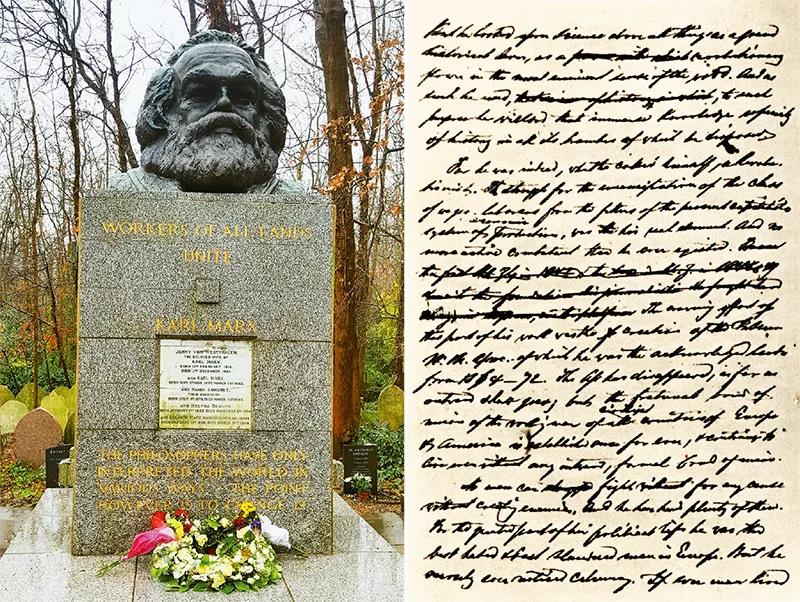 WORKERS OF ALL LANDS
UNITE
KARL MARX
JENNY VON WESTPHALEN,
THE BELOVED WIFE OF
KARL MARX.
BORN 12TH FEBRUARY
DIED 2ND DECEMBER 1881.
AND KARL MARX,
BORN MAY 5TH 1818, DIED MARCH 14TH 1883.
AND HARRY LONGUET,
THEIR GRANDSON.
BORN JULY 4TH 1878, DIED MARCH 20TH 1883.
AND HELENA DEMUTH,
THE PHILOSOPHERS HAVE ONLY
INTERPRETED THE WORLD IN
VARIOUS WAYS · THE POINT
HOWEVER IS TO CHANGE IT
he looked upon science above all things as a grand
historical lever, as a revolutionary
in the most eminent sense of the word. And as
such he used, to such
purpose he wielded that immense knowledge, especially
of history in all its branches of which he disposed
For he was indeed, what he called himself, a Revolu-
tionist. The struggle for the emancipation of the class
of wages-labourers from the fetters of the present capitalist
system of economic production, was his real element. And no
more active combatant than he ever existed.
the crowning effort of
this part of his work was the creation of the
W. M. of which he was the acknowledged leader
from 1864–72. The has disappeared, as far as
outward show goes; but the fraternal bond of
union of the working men of all civilised countries of Europe
& America is established once for ever, & continues to
live even without any outward, formal bond of union.
No man can fight for any cause
without creating enemies. And he has had plenty of them.
For the greater part of his political life he was the
best hated & best slandered man in Europe. But he
scarcely ever noticed calumny. If ever man lived